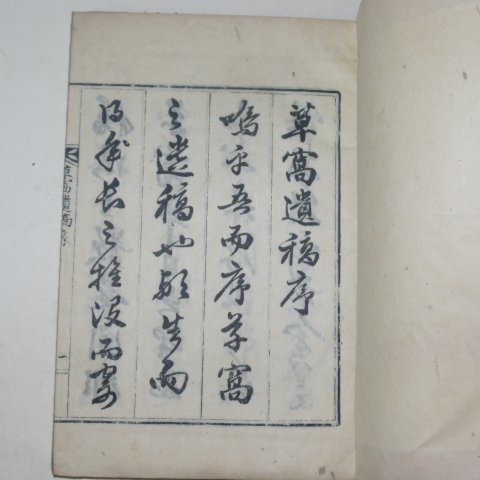 草窩遺稿序
嗚乎吾而序草窩
之遺稿也耶生而
年長之推沒而
草窩遺稿序
一